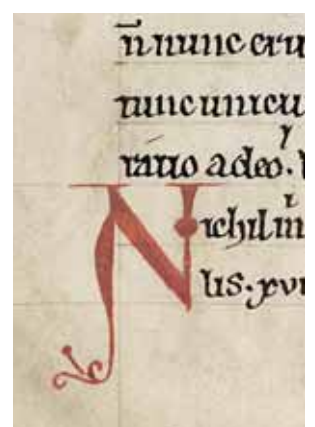 n̄ nunc cru
nunc unicu
ratio adeo.
Nichil in
lis. xvi